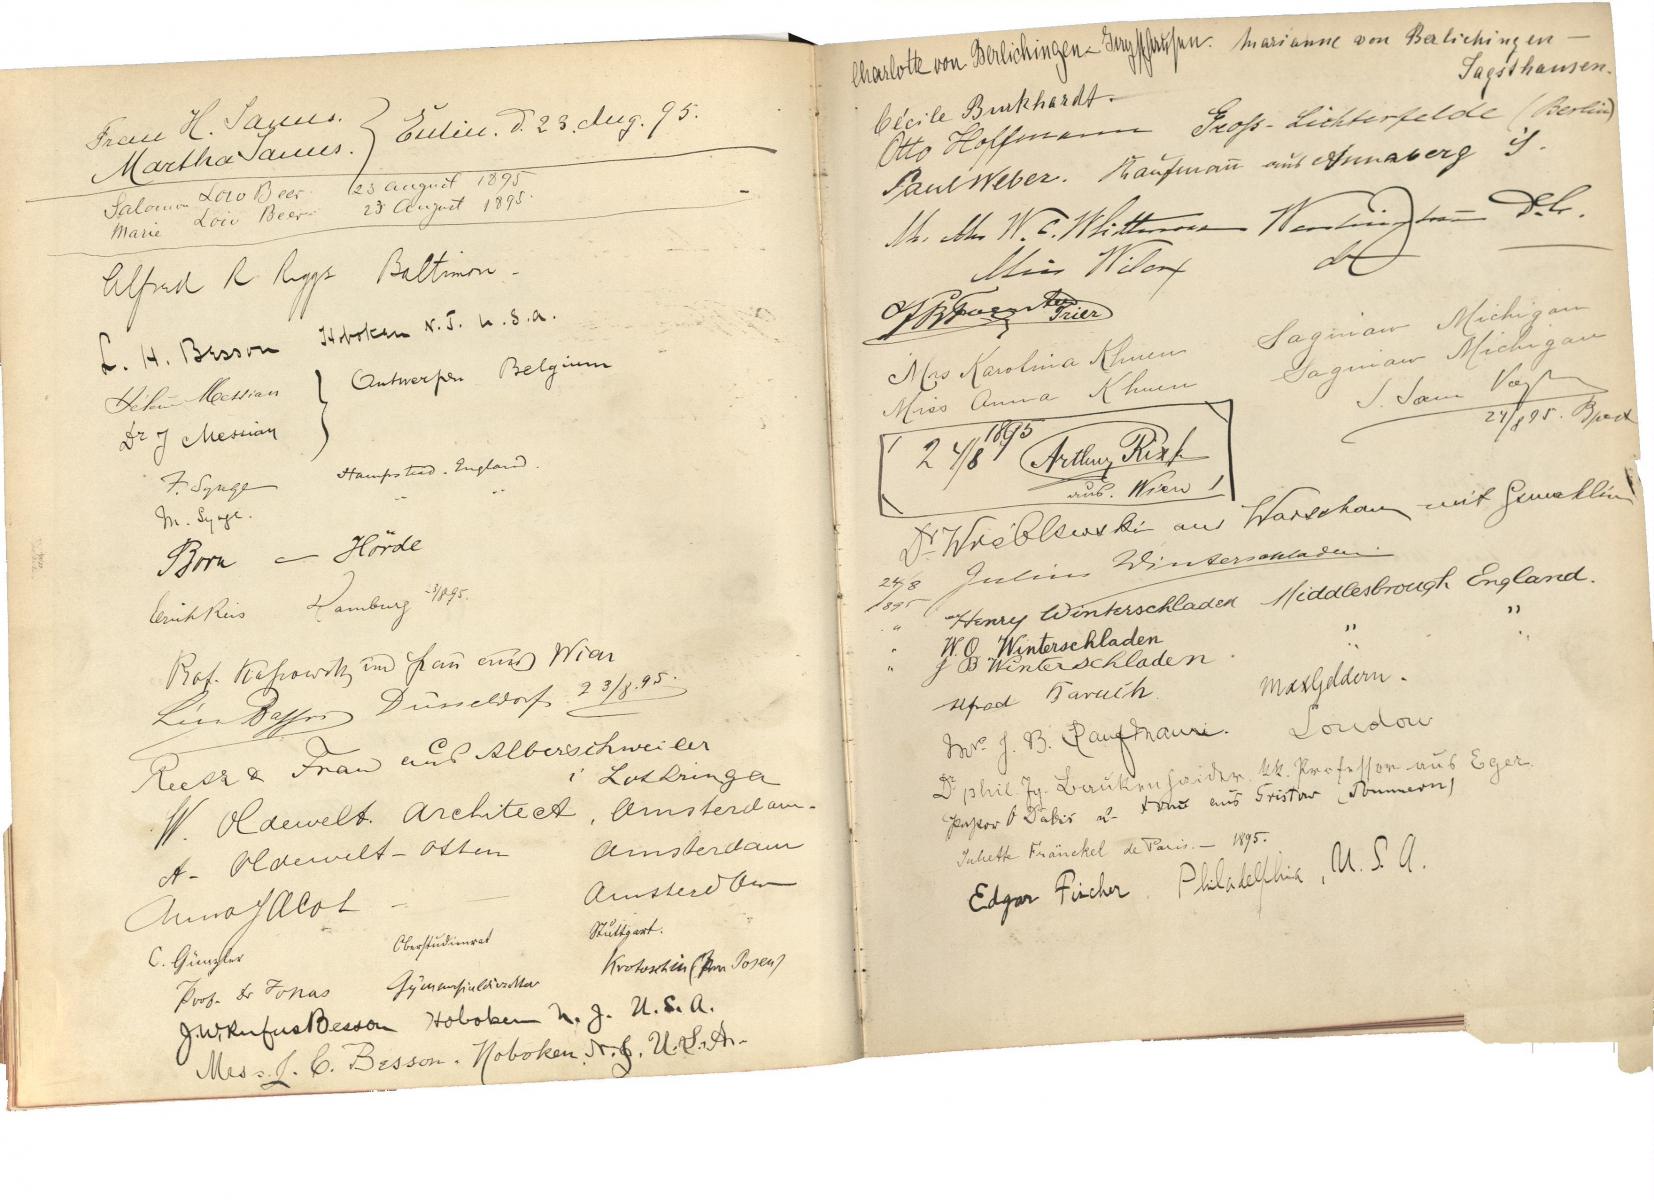 Frau H. Janus.
Martha Janus. } Eutin. d. 23. Aug. 95.
Salomon Löw Beer 23 august 1895
Marie Löw Beer 23 August 1895.
Alfred R Riggs Baltimore
L. H. Besson Hoboken N.J. U.S.A.
Messian } Antwerpen Belgium
Dr J Messian
F. Synge Hampstead. England.
M. Synge. " "
Born — Hörde
Erich Reis Hamburg
und Frau aus Wien
Düsseldorf 23/8.95.
& Frau aus Alberschweiler
i Lothringen
W. Oldewelt. Architect, Amsterdam.
A- Oldewelt-Otten Amsterdam
Anna Jacot - — Amsterdam
C. Günzler Oberstudienrat Stuttgart.
Prof. Dr Jonas Gymnasialdirektor Krotoschin (Prov Posen)
J.W. Rufus Besson Hoboken N. J. U.S.A.
Mrs. J. C. Besson. Hoboken. N.J. U.S.A.
Charlotte von Berlichingen- Marianne von Berlichingen —
Jagsthausen.
Cécile Burkhardt.
Otto Hoffmann Gross-Lichterfelde (Berlin)
Paul Weber. Kaufmann aus Annaberg i/S.
Mr. Mrs W. C. Whittemore Washington D.C.
Miss Wilcox do
Trier
Mrs Karolina Khuen Saginaw Michigan
Miss Anna Khuen Saginaw Michigan
24/8 95. Bpest
24/8 1895 Arthur
aus. Wien
Dr Wróblewski aus Warschau mit Gemahlin
24/8 895 Julius Winterschladen
" Henry Winterschladen Middlesbrough England.
" W. O. Winterschladen " "
" J B Winterschladen
Baruch. Max Geldern.
Mrs. J. B. Kaufmann. London
Dr phil. Jg. kk. Professor aus Eger.
Pastor O aus (Pommern)
Juliette Fränckel de Paris. — 1895.
Edgar Fischer. Philadelphia, U. S. A.